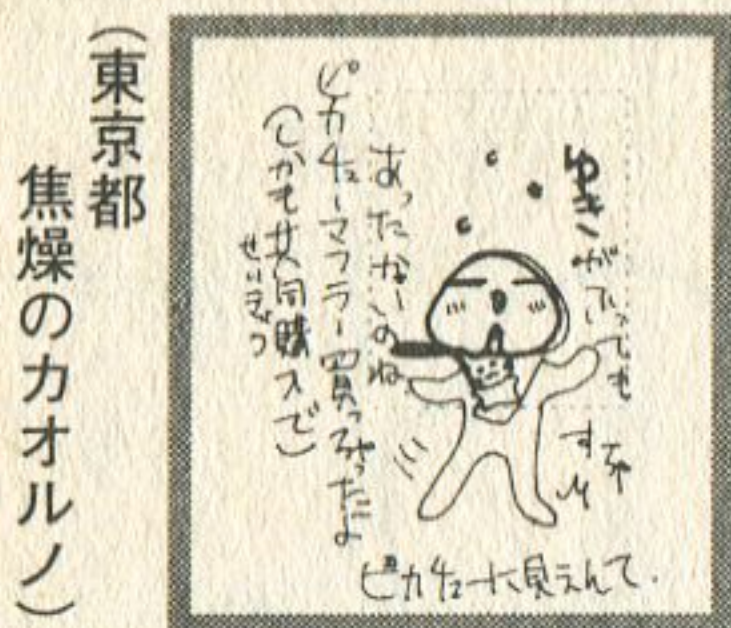 ゆきがふっても
あったかいのね
ピカチューマフラー買っちゃったよ
(しかも共同購入で)
せいきょう
ピカチューに見えんて.
(東京都
焦燥のカオルノ)